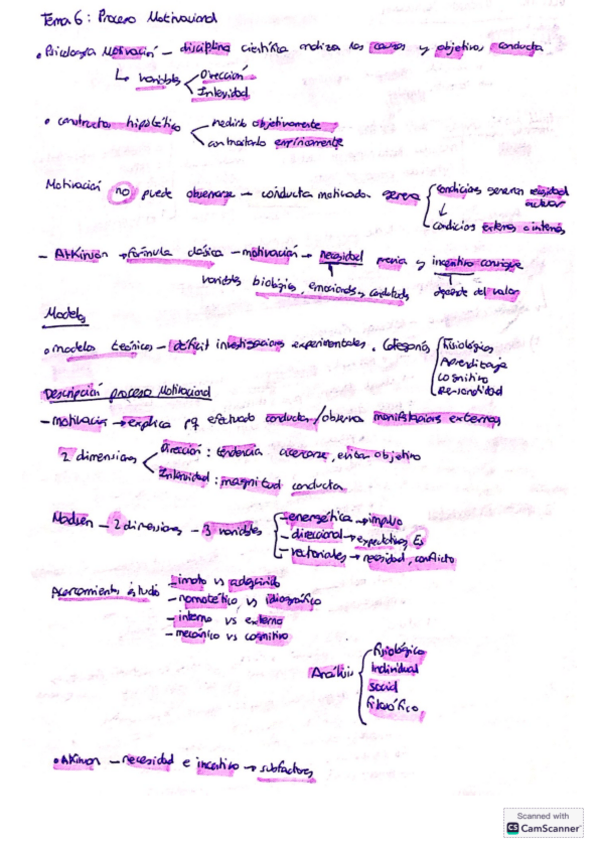 Tema 6: Proceso Motivacional
• Psicología Motivación - disciplina científica analiza las causas y objetivos conducta
↳ variables Dirección
Intensidad
• constructo hipotético medirlo objetivamente
contrastarlo empíricamente
Motivación no puede observarse - conducta motivada. genera condiciones generan necesidad actuar
↓
condicions externas o internas
- Atkinson → fórmula clásica - motivación → necesidad previa y incentivo consigue
variables biológicas, emocionales y conductuales depende del valor
Modelos
• modelos teóricos - déficit investigacions experimentales. Categorías Fisiológicos
Aprendizaje
Cognitivo
Personalidad
Descripción proceso Motivacional
- motivación → explica pq efectuado conducta / observa manifestacions externas
2 dimensiones Dirección: tendencia acercarse, evitar objetivo
Intensidad: magnitud conducta
Madsen - 2 dimensiones - 3 variables - energética → impulso
- direccional → expectativas
- vectoriales → necesidad, conflicto
Acercamiento estudio - innato vs adquirido
- nomotético vs idiográfico
- interno vs externo
- mecánico vs cognitivo
Análisis Fisiológico
Individual
social
filosófico
• Atkinson - necesidad e incentivo → subfactores
Scanned with
CS CamScanner